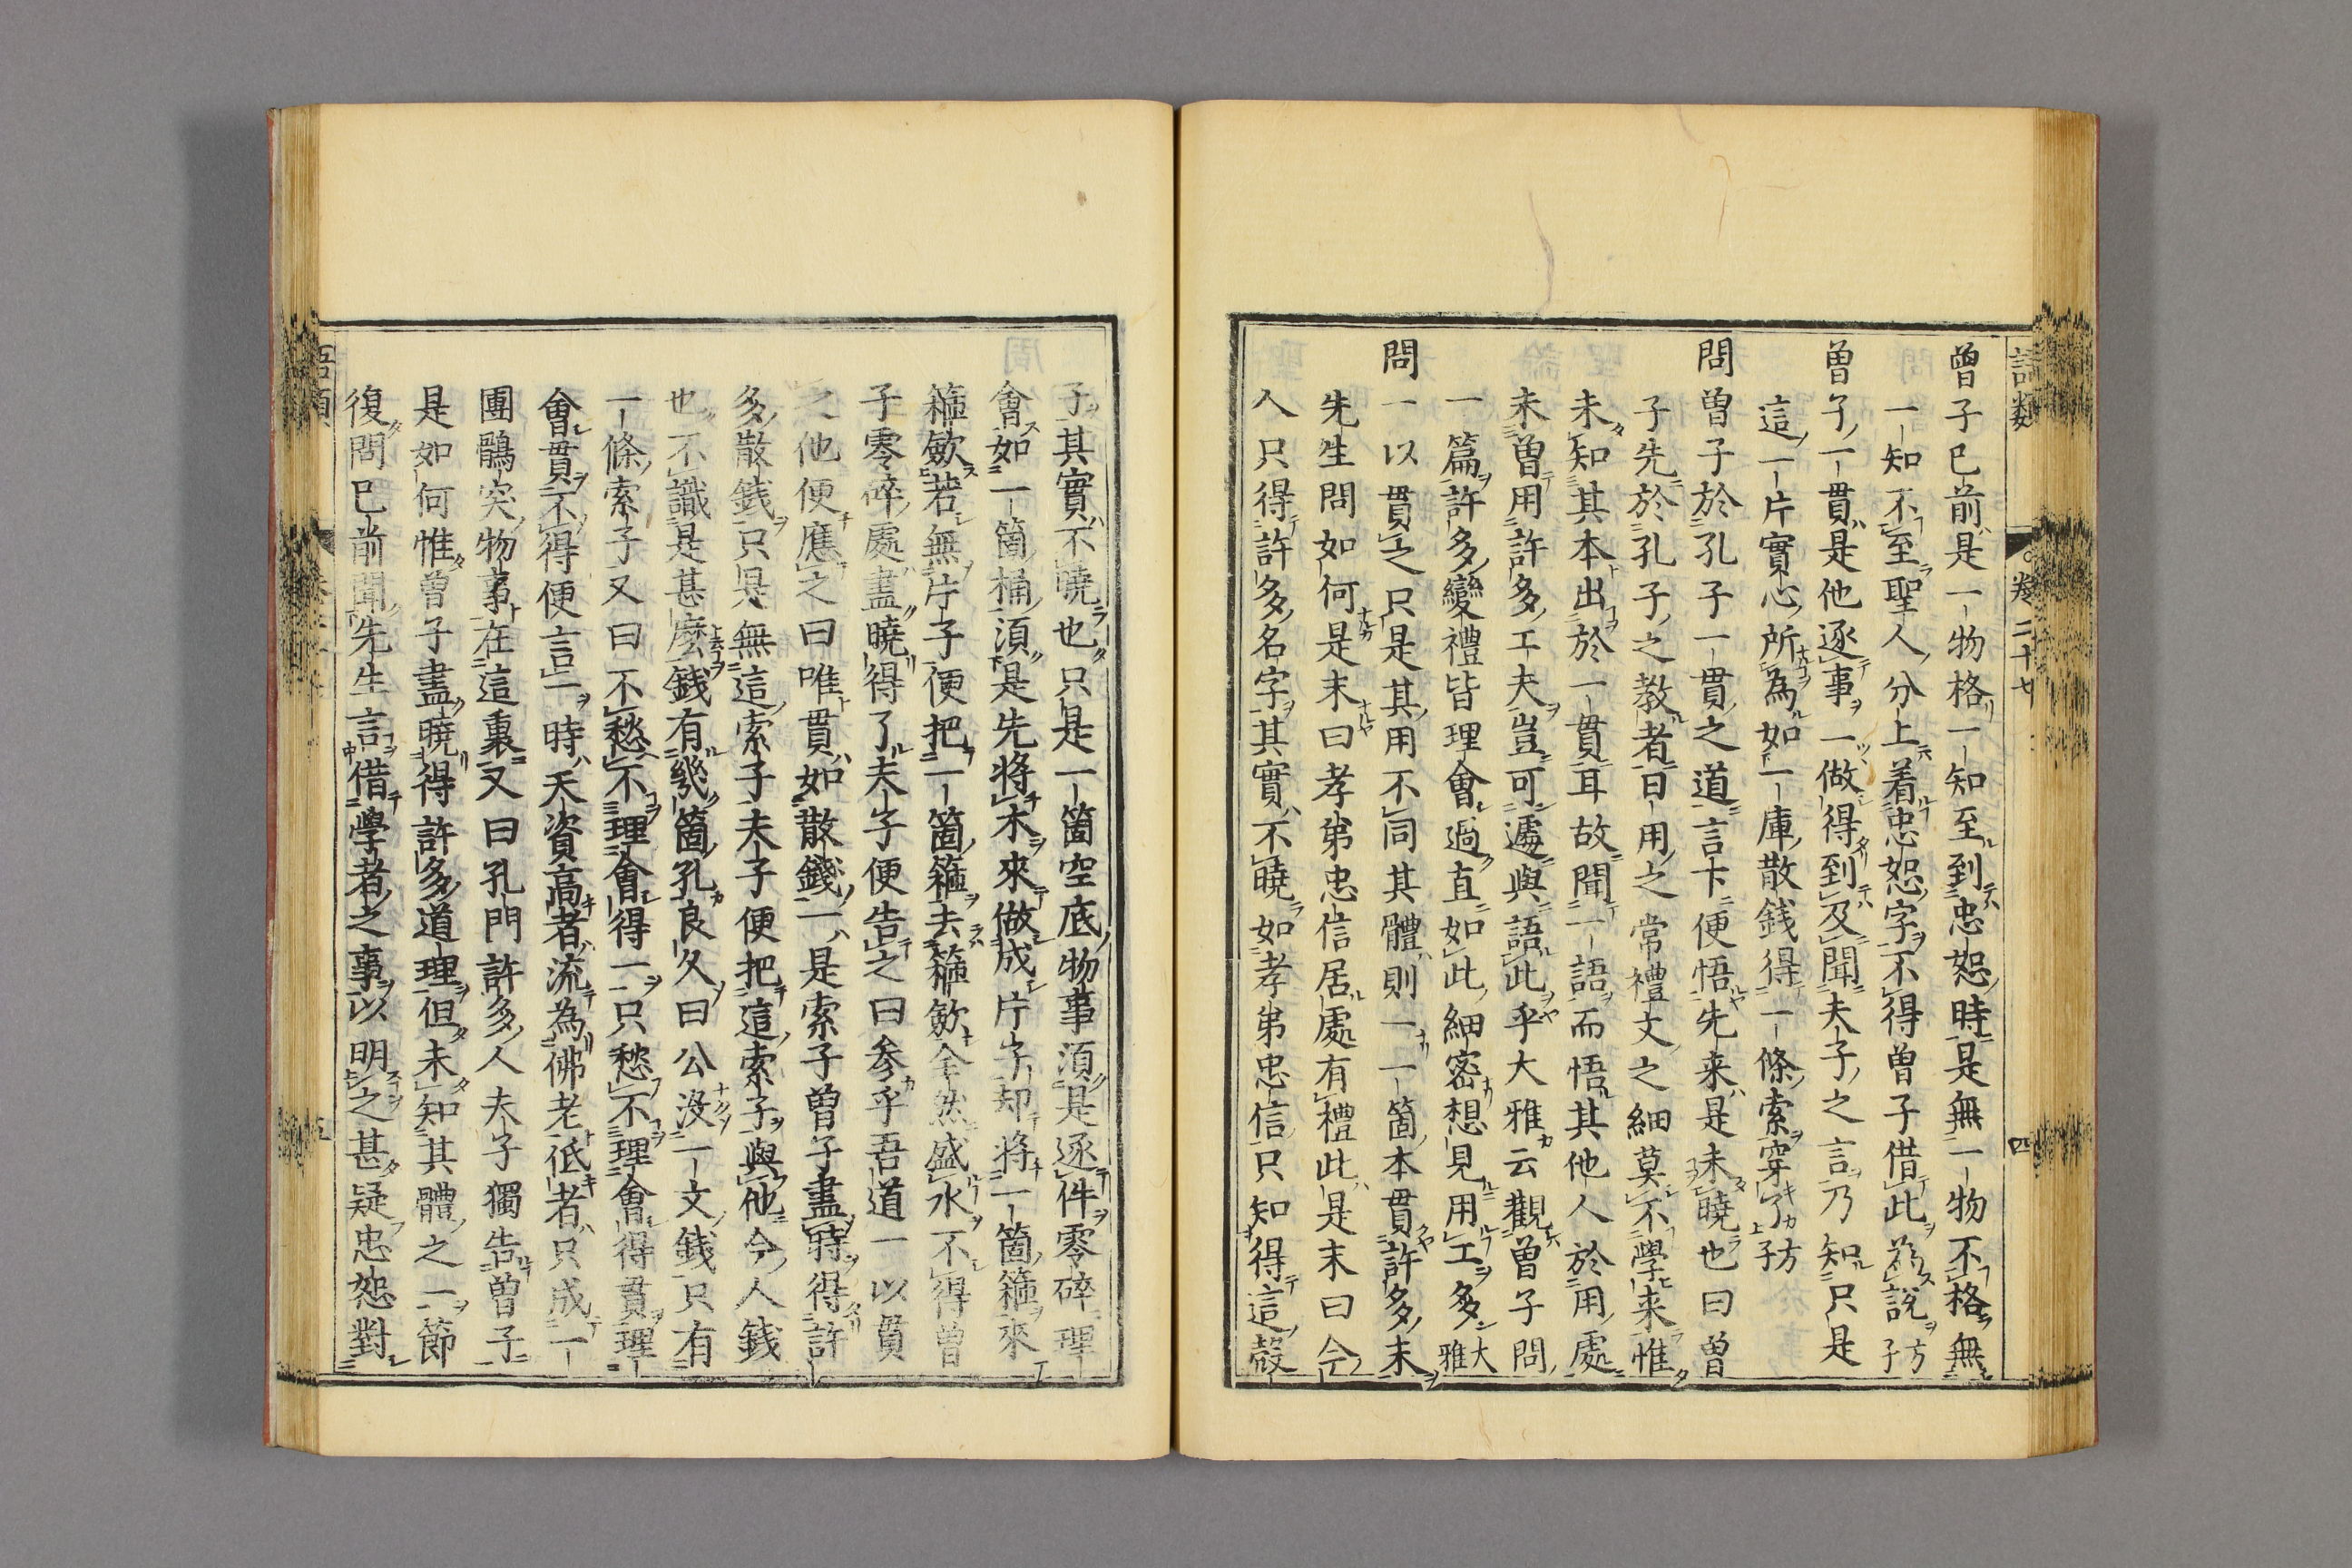 語類 卷二十七 四
曾子已前是一物格一知至到忠恕時是無一物不格無
一知不至聖人分上着忠恕字不得曾子借此爲說方子
曾子一貫是他逐事一做得到及聞夫子之言乃知只是
這一片實心所為如一庫散錢得一條索穿了方子
問曾子於孔子一貫之道言下便悟先来是未曉也曰曾
子先於孔子之教者日用之常禮文之細莫不學来惟
未知其本出於一貫耳故聞一語而悟其他人於用處
未曾用許多工夫豈可遽與語此乎大雅云觀曾子問
一篇許多變禮皆理會過直如此細密想見用工多大雅
問一以貫之只是其用不同其體則一一箇本貫許多末
先生問如何是末曰孝弟忠信居處有禮此是末曰今
人只得許多名字其實不曉如孝弟忠信只知得這殻
子其實不曉也只是一箇空底物事須是逐件零碎理
會如一箇桶須是先將木來做成片子却將一箇箍來
箍斂若無片子便把一箇箍去箍斂全然盛水不得曾
子零碎處盡曉得了夫子便告之曰参乎吾道一以貫
之他便應之曰唯貫如散錢一是索子曾子盡曉得許
多散錢只是無這索子夫子便把這索子與他今人錢
也不識是甚麽錢有幾箇孔良久曰公没一文錢只有
一條索子又曰不愁不理會得一只愁不理會得貫理
會貫不得便言一時天資高者流為佛老低者只成一
團鶻突物事在這裏又曰孔門許多人夫子獨告曾子
是如何惟曾子盡曉得許多道理但未知其體之一節
復問已前聞先生言借學者之事以明之甚疑忠恕對
語類